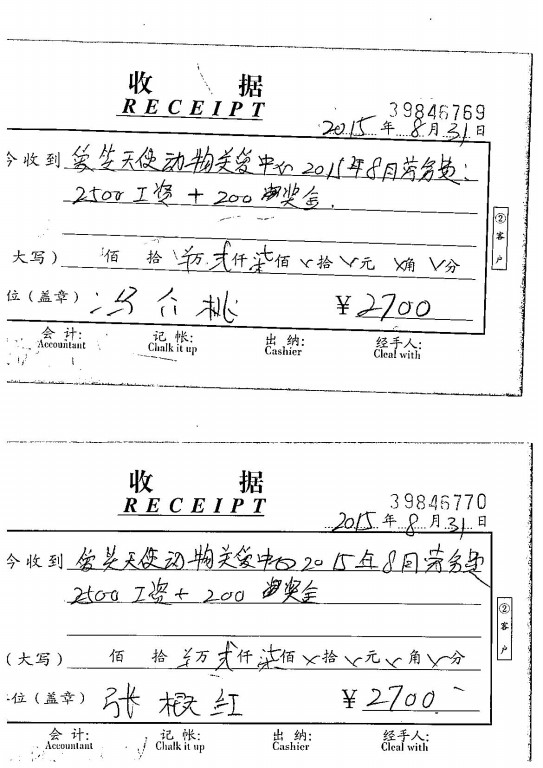 收 据
RECEIPT
39846769
2015 年 8 月 31 日
今收到 爱笑天使动物关爱中心 2015年8月劳务费:
2500 工资 + 200 奖金.
② 客户
大写) 佰 拾 万 贰仟 柒佰 拾 元 角 分
位(盖章) 冯介桃 ¥2700
会 计: 记 帐: 出 纳: 经手人:
Accountant Chalk it up Cashier Cleal with
收 据
RECEIPT
39846770
2015 年 8 月 31 日
今收到 爱笑天使动物关爱中心 2015年8月劳务费
2500 工资 + 200 奖金
② 客户
(大写) 佰 拾 万 贰仟 柒佰 拾 元 角 分
位(盖章) 张根红 ¥2700
会 计: 记 帐: 出 纳: 经手人:
Accountant Chalk it up Cashier Cleal with